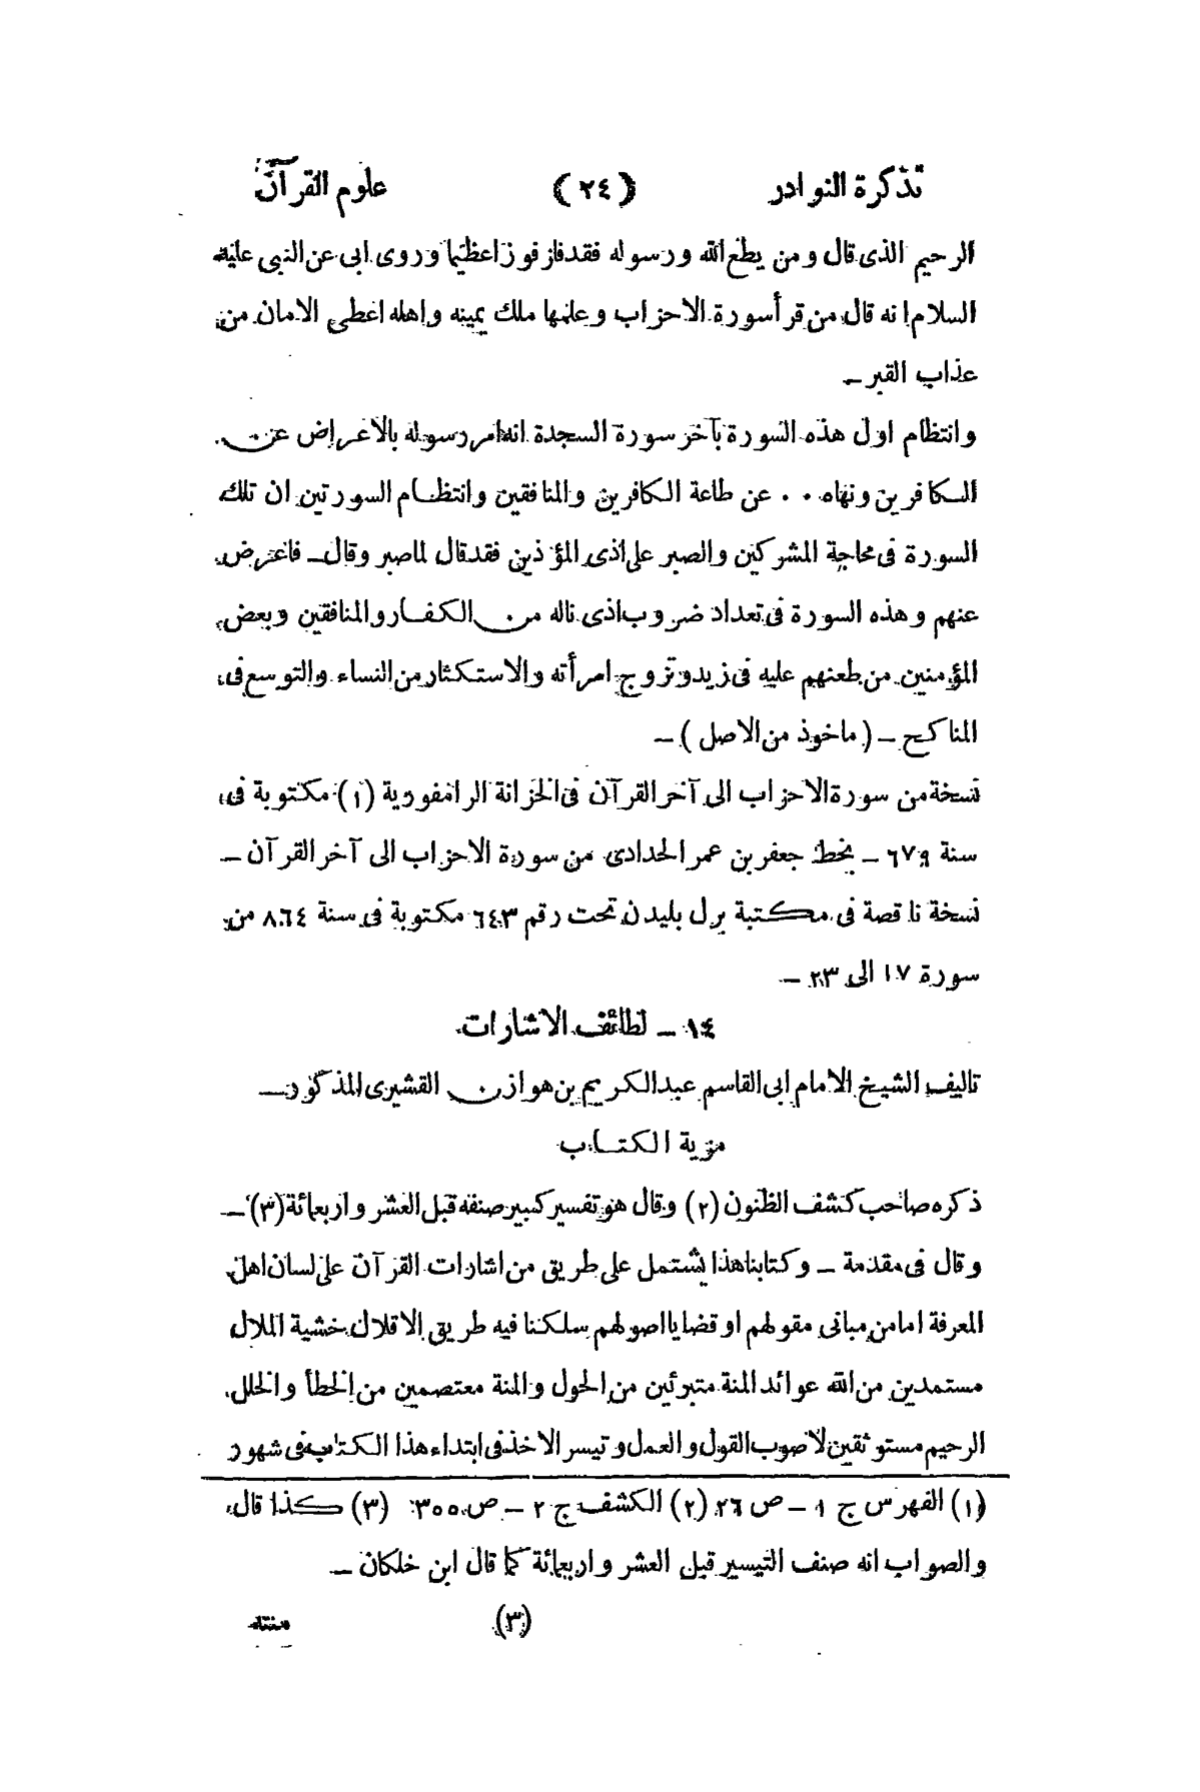 تذكرة النوادر (٢٤) علوم القرآن
الرحيم الذى قال ومن يطع الله ورسوله فقد فاز فوزا عظيما وروى ابى عن النبى عليه
السلام انه قال من قرأ سورة الاحزاب وعلمها ملك يمينه واهله اعطى الامان من
عذاب القبر ــ
وانتظام اول هذه السورة بآخر سورة السجدة انه امر رسوله بالاعراض عن
الكافرين ونهاه ٠ ٠ عن طاعة الكافرين والمنافقين وانتظام السورتين ان تلك
السورة فى محاجة المشركين والصبر على اذى المؤذين فقد قال لما صبر وقال ــ فاعرض
عنهم وهذه السورة فى تعداد ضروب اذى ناله من الكفار والمنافقين وبعض
المؤمنين من طعنهم عليه فى زيد وتزوج امرأته والاستكثار من النساء والتوسع فى
المناكح ــ (ماخوذ من الاصل) ــ
نسخة من سورة الاحزاب الى آخر القرآن فى الخزانة الرامفورية (١) مكتوبة فى
سنة ٦٧٩ ــ بخط جعفر بن عمر الحدادى من سورة الاحزاب الى آخر القرآن ــ
نسخة ناقصة فى مكتبة برل بليدن تحت رقم ٦٤٣ مكتوبة فى سنة ٨٦٤ من
سورة ١٧ الى ٢٣ ــ
١٤ ــ لطائف الاشارات
تاليف الشيخ الامام ابى القاسم عبد الكريم بن هوازن القشيرى المذكور ــ
مزية الكتاب
ذكره صاحب كشف الظنون (٢) وقال هو تفسير كبير صنفه قبل العشر واربعمائة (٣) ــ
وقال فى مقدمة ــ وكتابنا هذا يشتمل على طريق من اشارات القرآن على لسان اهل
المعرفة اما من مبانى مقولهم او قضايا اصولهم سلكنا فيه طريق الاقلال خشية الملال
مستمدين من الله عوائد المنة متبرئين من الحول والمنة معتصمين من الخطأ والخلل
الرحيم مستوثقين لاصوب القول والعمل وتيسر الاخذ فى ابتداء هذا الكتاب فى شهور
(١) الفهرس ج ١ ــ ص ٢٦ (٢) الكشف ج ٢ ــ ص ٣٥٥ (٣) كذا قال
والصواب انه صنف التيسير قبل العشر واربعمائة كما قال ابن خلكان ــ
(٣) سنته